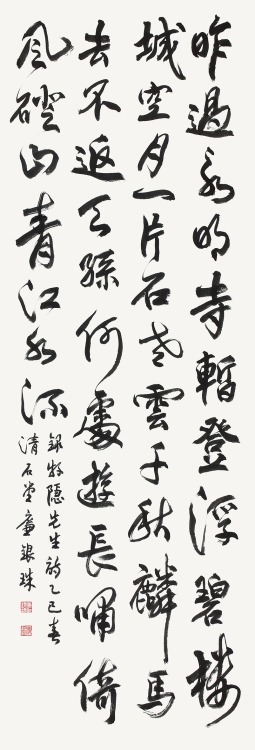 昨過永明寺暫登浮碧楼
城空月一片石老雲千秋麟馬
去不返天孫何處遊長嘯倚
風磴山青江水流
錄牧隱先生詩乙巳春
清石堂童銀珠